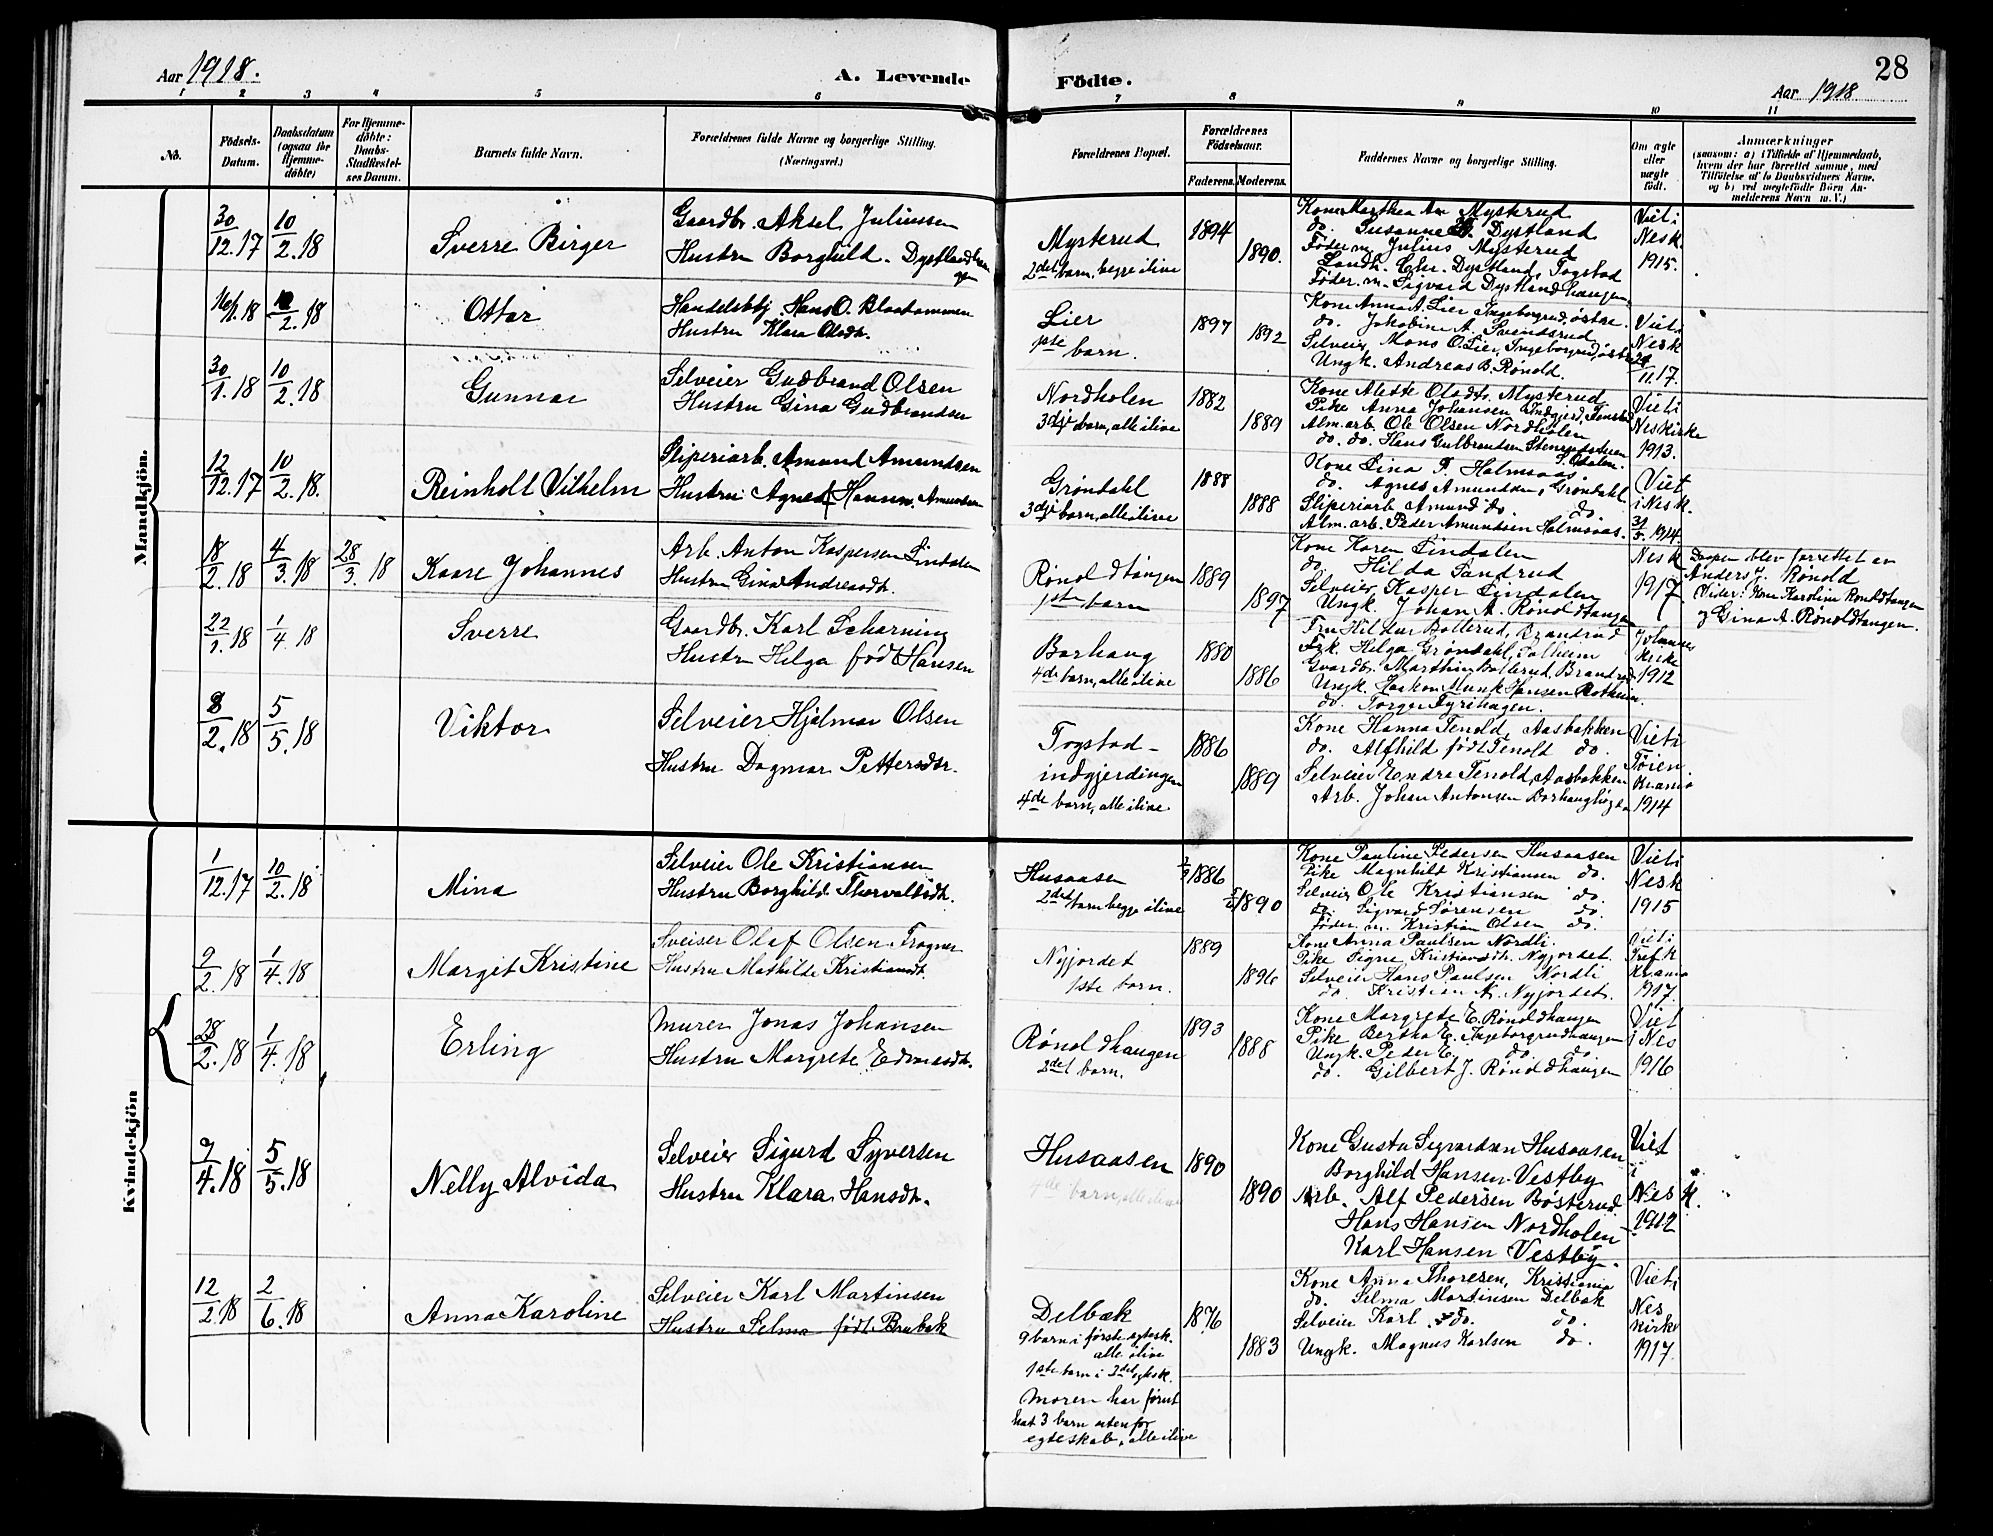 Aar 1918.
A. Levende
Födte.
28
Aar 1918
1 2 3 4 5 6 7 8 9 10 11
No.
Födsels-
Datum.
Daabsdatum
(ogsaa for
Hjemme-
döbte)
For Hjemme-
döbte:
Daabs-
Stadfæstel-
ses Datum.
Barnets fulde Navn.
Forældrenes fulde Navne og borgerlige Stilling.
(Næringsvei.)
Forældrenes Bopæl.
Forældrenes
Födselsaar.
Faderens.
Moderens.
Faddernes Navne og borgerlige Stilling.
Om ægte
eller
uægte
født.
Anmærkninger
(saasom: a) i Tilfælde af Hjemmedaab,
hvem der har forrettet samme, med
Tilföielse af to Daabsvidners Navne,
og b) ved uegtefödte Börn An-
melderens Navn m. V.)
Mandkjön.
30/12.17
10/2.18
Sverre Birger
Gaardbr. Aksel Juliussen
Hustru Borghild
Mysterud
2det barn, begge ilive
1894
1890.
Kone Marthea Mysterud
do. Susanne Dystland
Föder.m. Julius Mysterud
Landh. Chr. Dystland, Fogstad
Föder.m. Sigvard Dystlandhaugen
Viet i
Nesk.
1915.
16/1.18
10/2.18
Ottar
Hans O. Blaatammen
Hustru Klara Olsdt.
Lier
1ste barn.
1897
1892
Kone Anna A. Lier Ingeborgrud, østre
do. Jakobine A. Svendsrud
Selveier Mons O. Lier, Ingeborgrud, østre
Ungk. Andreas B. Rønold.
Viet i
Nesk
11.17.
30/1.18
10/2.18
Gunnar
Selveier Gudbrand Olsen
Hustru Gina Gudbrandsen
Nordholen
3dje barn, alle ilive
1882
1889
Kone Alette Olsdt. Mysterud
Pike Anna Johansen
Alm.arb. Ole Olsen Nordholen
do. do. Hans Gulbrandsen
S. Odalen.
Viet i
Neskirke
1913.
12/12.17
10/2.18.
Reinholt Vilhelm
Sliperiarb. Amund Amundsen
Hustru Agnes Hansen Amundsen
Grøndahl
3dje barn, alle ilive
1888
1888
Kone Lina F. Holmsaas
do. Agnes Amundsen, Grøndahl
Sliperiarb. Amund do. do.
Alm. arb. Peder Amundsen Holmsaas.
Viet
i Nesk.
31/5.1914.
18/2.18
4/3.18
28/3.18
Kaare Johannes
Arb. Anton Kaspersen Lindalen
Hustru Gina Andreasdt.
Rønoldtangen
1ste barn
1889
1897
Kone Karen Lindalen
do. Hilda Sandrud
Selveier Kasper Lindalen
Ungk. Johan A. Rønoldtangen
Nesk
1917
Daapen blev forrettet av
Anders J. Rønold
Vider: Kone Karoline Rønoldtangen
og Gina A. Rønoldtangen.
22/1.18
1/4.18
Sverre
Gaardbr. Karl Scharning
Hustru Helga født Hansen
Borhaug
4de barn, alle ilive
1880
1886
Fru Hildur Bollerud, Brandrud
Frk. Helga Grøndahl,
Gaardbr. Marthin Bollerud, Brandrud
Ungk. Haakon Munk Hansen
do. Torger Fyrihagen.
Johannes
kirke
1912
8/2.18
5/5.18
Viktor
Selveier Hjalmar Olsen
Hustru Dagmar Pettersdtr.
Fogstad-
indgjerdingen
4de barn, alle ilive
1886
1889
Kone Hanna Tenold, Aasbakken
do. Alfhild født Tenold do.
Selveier Endre Tenold, Aasbakken
Arb. Johan Antonsen
Viet i
Tøien
Kr.ania
1914
Kvindekjön
1/12.17
10/2.18
Mina
Selveier Ole Kristiansen
Hustru Borghild Thorvaldsdt.
Husaasen
2det barn begge ilive
1886
1890
Kone Pauline Pedersen Husaasen
Pike Magnhild Kristiansen do.
Selveier Ole Kristiansen do.
do. Sigvard Sørensen do.
Føder. m. Kristian Olsen do.
Viet i
Nesk
1915
2/2.18
1/4.18
Margit Kristine
Sveiser Olaf Olsen Frogner
Hustru Mathilde Kristiansdt.
Nyjordet
1ste barn.
1889
1896
Kone Anna Paulsen Nordli.
Pike Signe Kristiansdt. Nyjordet.
Selveier Hans Paulsen Nordli
do. Kristian A. Nyjordet.
Viet i
Kr.ania
1917.
28/2.18
1/4.18
Erling
Murer Jonas Johansen
Hustru Margrete
Rønoldhaugen
2det barn.
1893
1888
Kone Margrete E. Rønoldhaugen
Pike Bertha E. Ingeborgrudhaugen
Ungk. Peder E. do do
do. Gilbert J. Rønoldhaugen
Viet
i Nes
1916
7/4.18
5/5.18
Nelly Alvida
Selveier Sigurd Syversen
Hustru Klara Hansdt.
Husaasen
4de barn, alle ilive
1890
1890
Kone Gusta Sigvardsen Husaasen
Borghild Hansen Vestby
Arb. Alf Pedersen Bøsterud
Hans Hansen Nordholen
Karl Hansen Vestby.
Viet
i
Nesk.
1912
12/2.18
2/6.18
Anna Karoline
Selveier Karl Martinsen
Hustru Selma født Brubak
Delbæk
9 barn i første egtesk.
alle ilive
1ste barn i 2det egtesk.
Moren har forut
hat 3 barn utenfor
egteskab, alle ilive
1876
1883
Kone Anna Thoresen, Kristiania
do. Selma Martinsen Delbæk
Selveier Karl do. do.
Ungk. Magnus Karlsen do.
Viet i
Nes
kirke
1917.